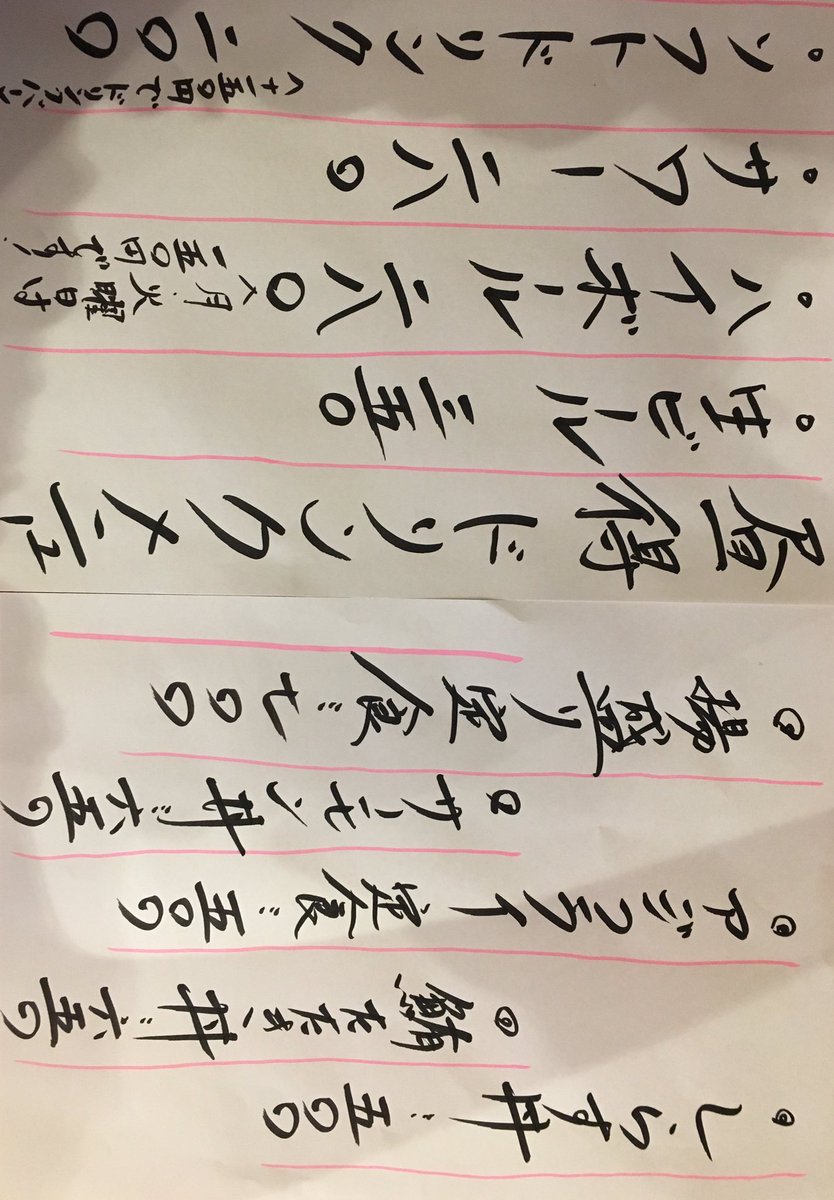 しらす丼…五〇〇
鮪たたき丼…六五〇
アジフライ定食…五〇〇
サーモン丼…六五〇
場盛り定食…七〇〇
昼得ドリンクメニュ
生ビール 三五〇
ハイボール 二八〇
月、火曜日は
一五〇円です!
サワー 二八〇
ソフトドリンク 二〇〇
十一五〇円でドリンクバー